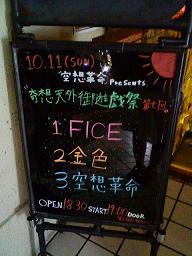 10.11(SUN)
空想革命 Presents
"奇想天外御遊戯祭 第七回"
1 FICE
2 金色
3 空想革命
OPEN 18:30 START 19:00 DOOR